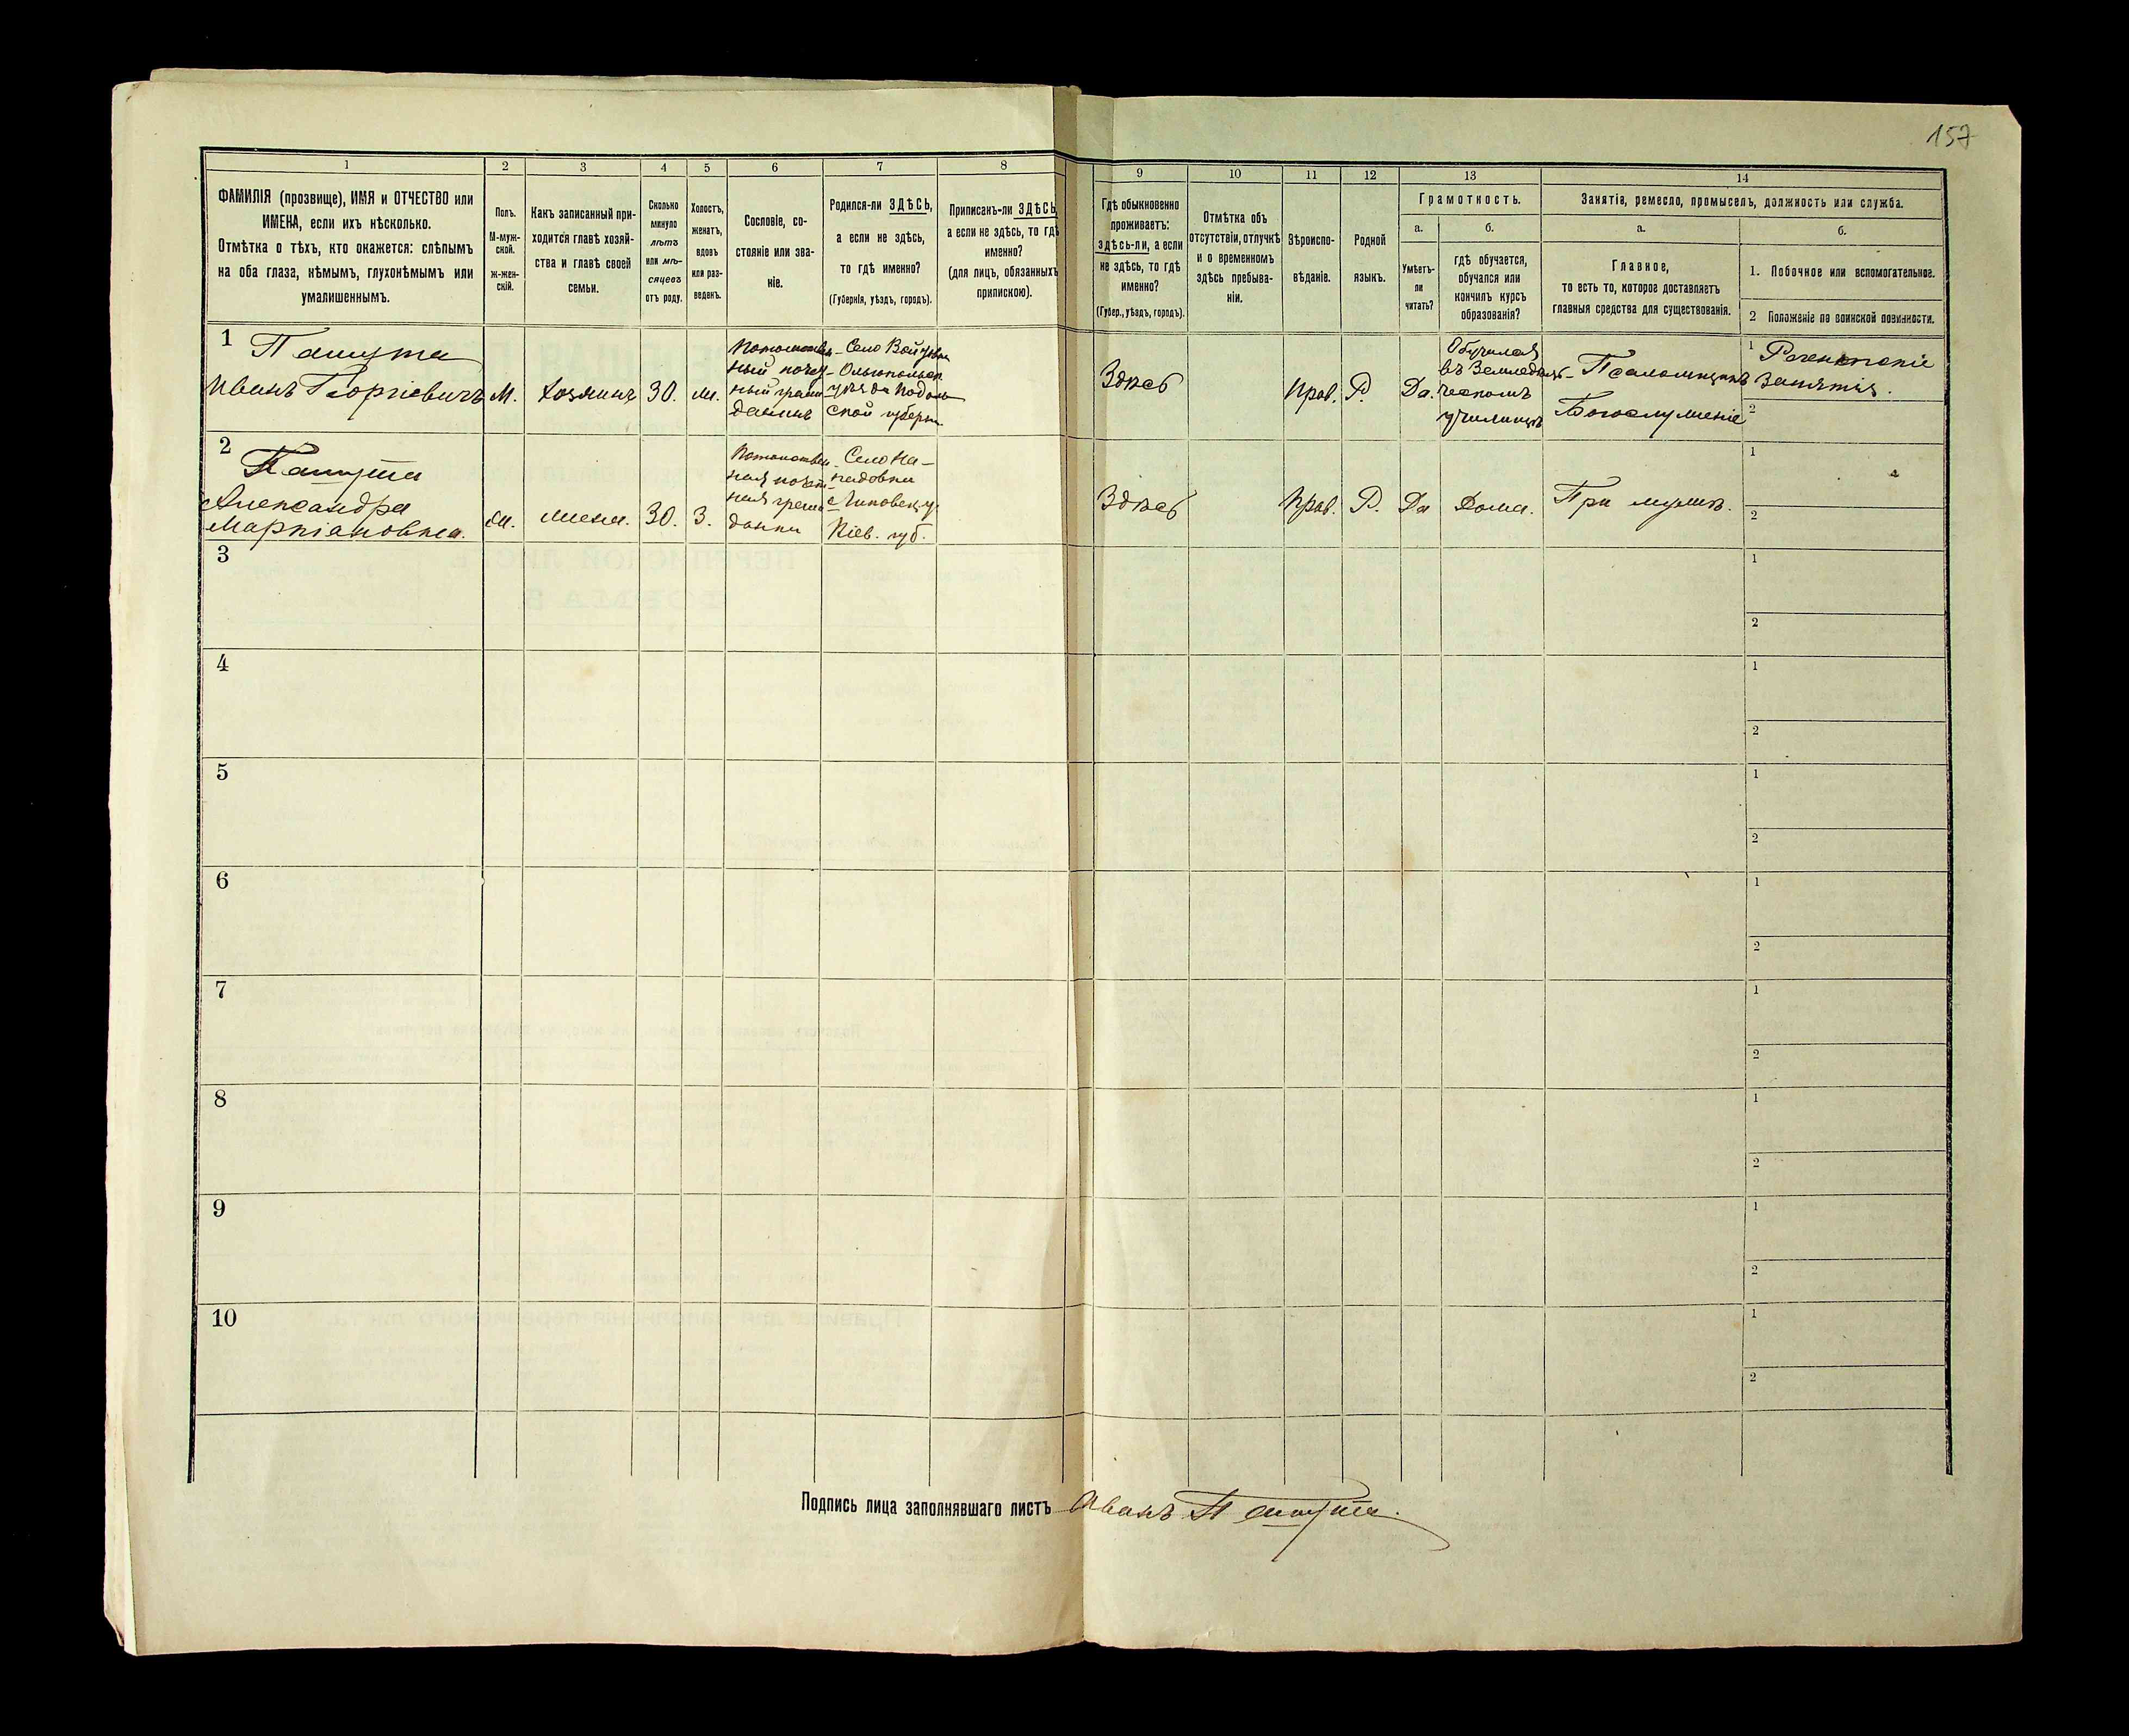 157
1
ФАМИЛІЯ (прозвище), ИМЯ и ОТЧЕСТВО или
ИМЕНА, если ихъ нѣсколько.
Отмѣтка о тѣхъ, кто окажется: слѣпымъ
на оба глаза, нѣмымъ, глухонѣмымъ или
умалишеннымъ.
2
Полъ.
М-муж-
ской.
ж-жен-
скій.
3
Какъ записанный при-
ходится главѣ хозяй-
ства и главѣ своей
семьи.
4
Сколько
минуло
лѣтъ
или мѣ-
сяцевъ
отъ роду.
5
Холостъ,
женатъ,
вдовъ
или раз-
веденъ.
6
Сословіе, со-
стояніе или зва-
ніе.
7
Родился-ли ЗДѢСЬ,
а если не здѣсь,
то гдѣ именно?
(Губернія, уѣздъ, городъ).
8
Приписанъ-ли ЗДѢСЬ,
а если не здѣсь, то гдѣ
именно?
(для лицъ, обязанныхъ
припискою).
9
Гдѣ обыкновенно
проживаетъ:
здѣсь-ли, а если
не здѣсь, то гдѣ
именно?
(Губер., уѣздъ, городъ).
10
Отмѣтка объ
отсутствіи, отлучкѣ
и о временномъ
здѣсь пребыва-
ніи.
11
Вѣроиспо-
вѣданіе.
12
Родной
языкъ.
13
Грамотность.
а.
Умѣетъ-
ли
читать?
б.
гдѣ обучается,
обучался или
кончилъ курсъ
образованія?
14
Занятія, ремесло, промыселъ, должность или служба.
а.
Главное,
то есть то, которое доставляетъ
главныя средства для существованія.
б.
1. Побочное или вспомогательное.
2 Положеніе по воинской повинности.
1
Иванъ Георгіевичъ
М.
Хозяинъ
30.
ж.
Потомствен-
ный почет-
ный граж-
данинъ
Село
Ольгопольск
уѣзда Подоль
ской губерн.
Здѣсь
Прав.
Р.
Да.
Обучался
въ Земледѣль-
ческомъ
училищѣ
Псаломщикъ
Богослуженіе
1
занятія.
2
2
Александра
Маркіановна.
ж.
жена.
30.
З.
Потомствен
ная почет-
ная граж
данка
Село На-
падовка
Липовец. у.
Кіев. губ.
Здѣсь
Прав.
Р.
Да
Дома.
При мужѣ.
1
2
3
1
2
4
1
2
5
1
2
6
1
2
7
1
2
8
1
2
9
1
2
10
1
2
Подпись лица заполнявшаго листъ Иванъ